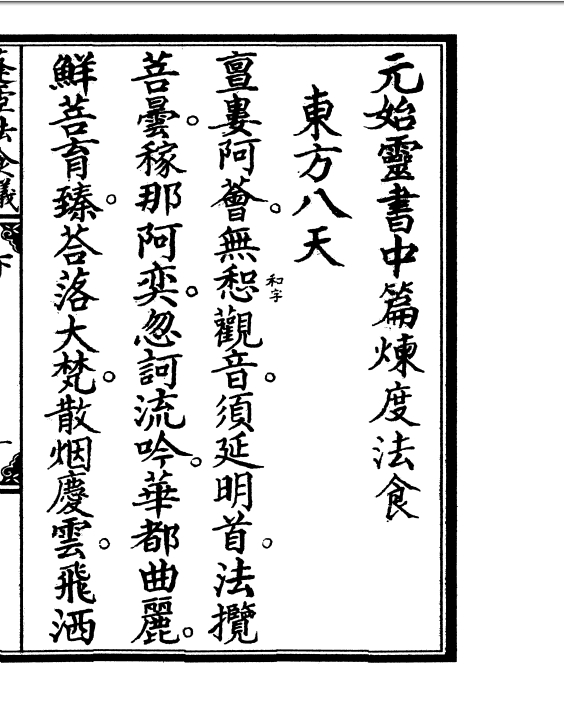 元始靈書中篇煉度法食
東方八天
亶婁阿薈。無惒觀音。須延明首。法攬
和字
菩曇。稼那阿奕。忽訶流吟。華都曲麗。
鮮菩育臻。荅落大梵。散烟慶雲。飛洒